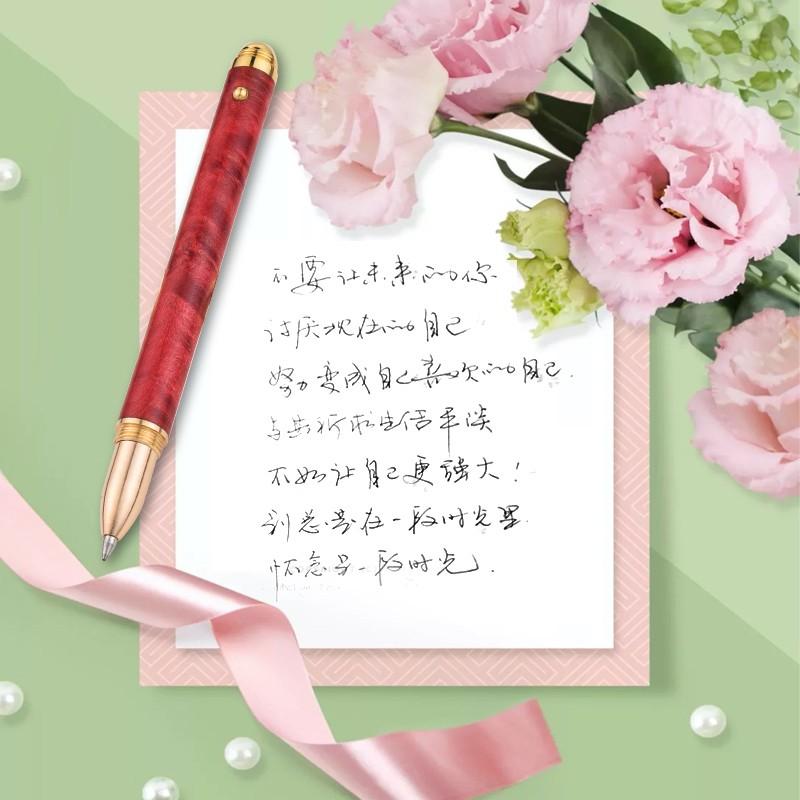 不要让未来的你
讨厌现在的自己
努力变成自己喜欢的自己.
与其祈求生活平淡
不如让自己更强大!
别总是在一段时光里
怀念另一段时光.